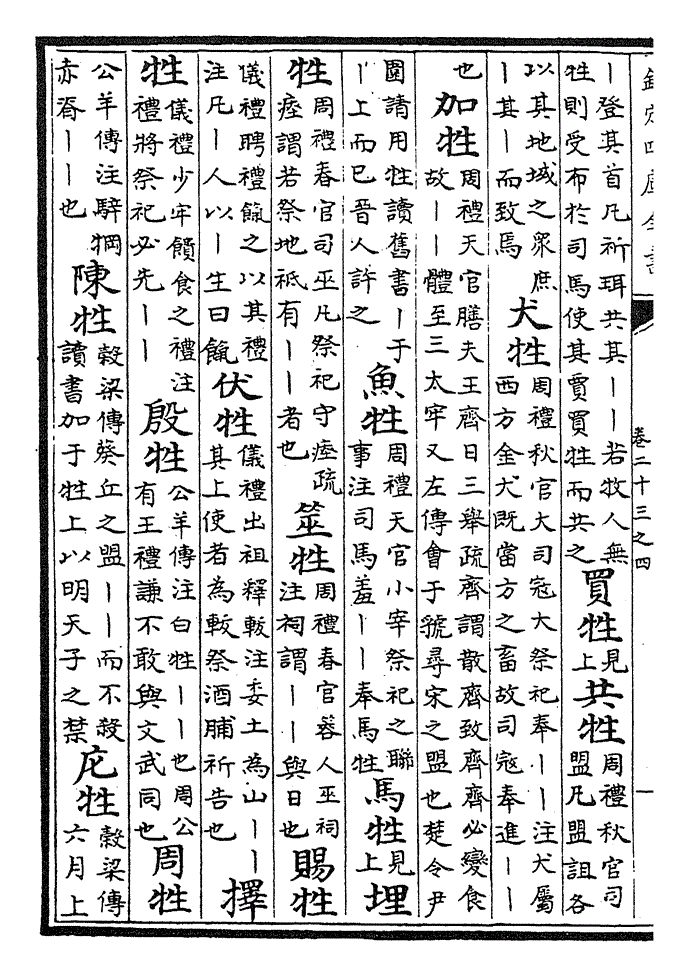 欽定四庫全書
卷二十三之四
丨登其首凡祈珥共其丨丨若牧人無牲則受布於司馬使其賈買牲而共之買牲見上共牲周禮秋官司盟凡盟詛各
以其地域之衆庶丨其丨而致焉犬牲周禮秋官大司宼大祭祀奉丨丨注犬屬西方金犬既當方之畜故司宼奉進丨丨
也加牲周禮天官膳夫王齊日三舉疏齊謂散齊致齊齊必變食故丨丨體至三太牢又左傳會于虢尋宋之盟也楚令尹
圍請用牲讀舊書丨于丨上而已晉人許之魚牲周禮天官小宰祭祀之聯事注司馬羞丨丨奉馬牲馬牲見上埋
牲周禮春官司巫凡祭祀守瘞疏瘞謂若祭地祗有丨丨者也筮牲周禮春官蓉人巫祠注祠謂丨丨與日也賜牲
儀禮聘禮餼之以其禮注凡丨人以丨生曰餼伏牲儀禮出祖釋軷注委土為山丨丨其上使者為軷祭酒脯祈告也擇
牲儀禮少牢饋食之禮注禮將祭祀必先丨丨殷牲公羊傳注白牲丨丨也周公有王禮謙不敢與文武同也周牲
公羊傳注騂犅赤脊丨丨也陳牲榖梁傳葵丘之盟丨丨而不殺讀書加于牲上以明天子之禁庀牲榖梁傳六月上